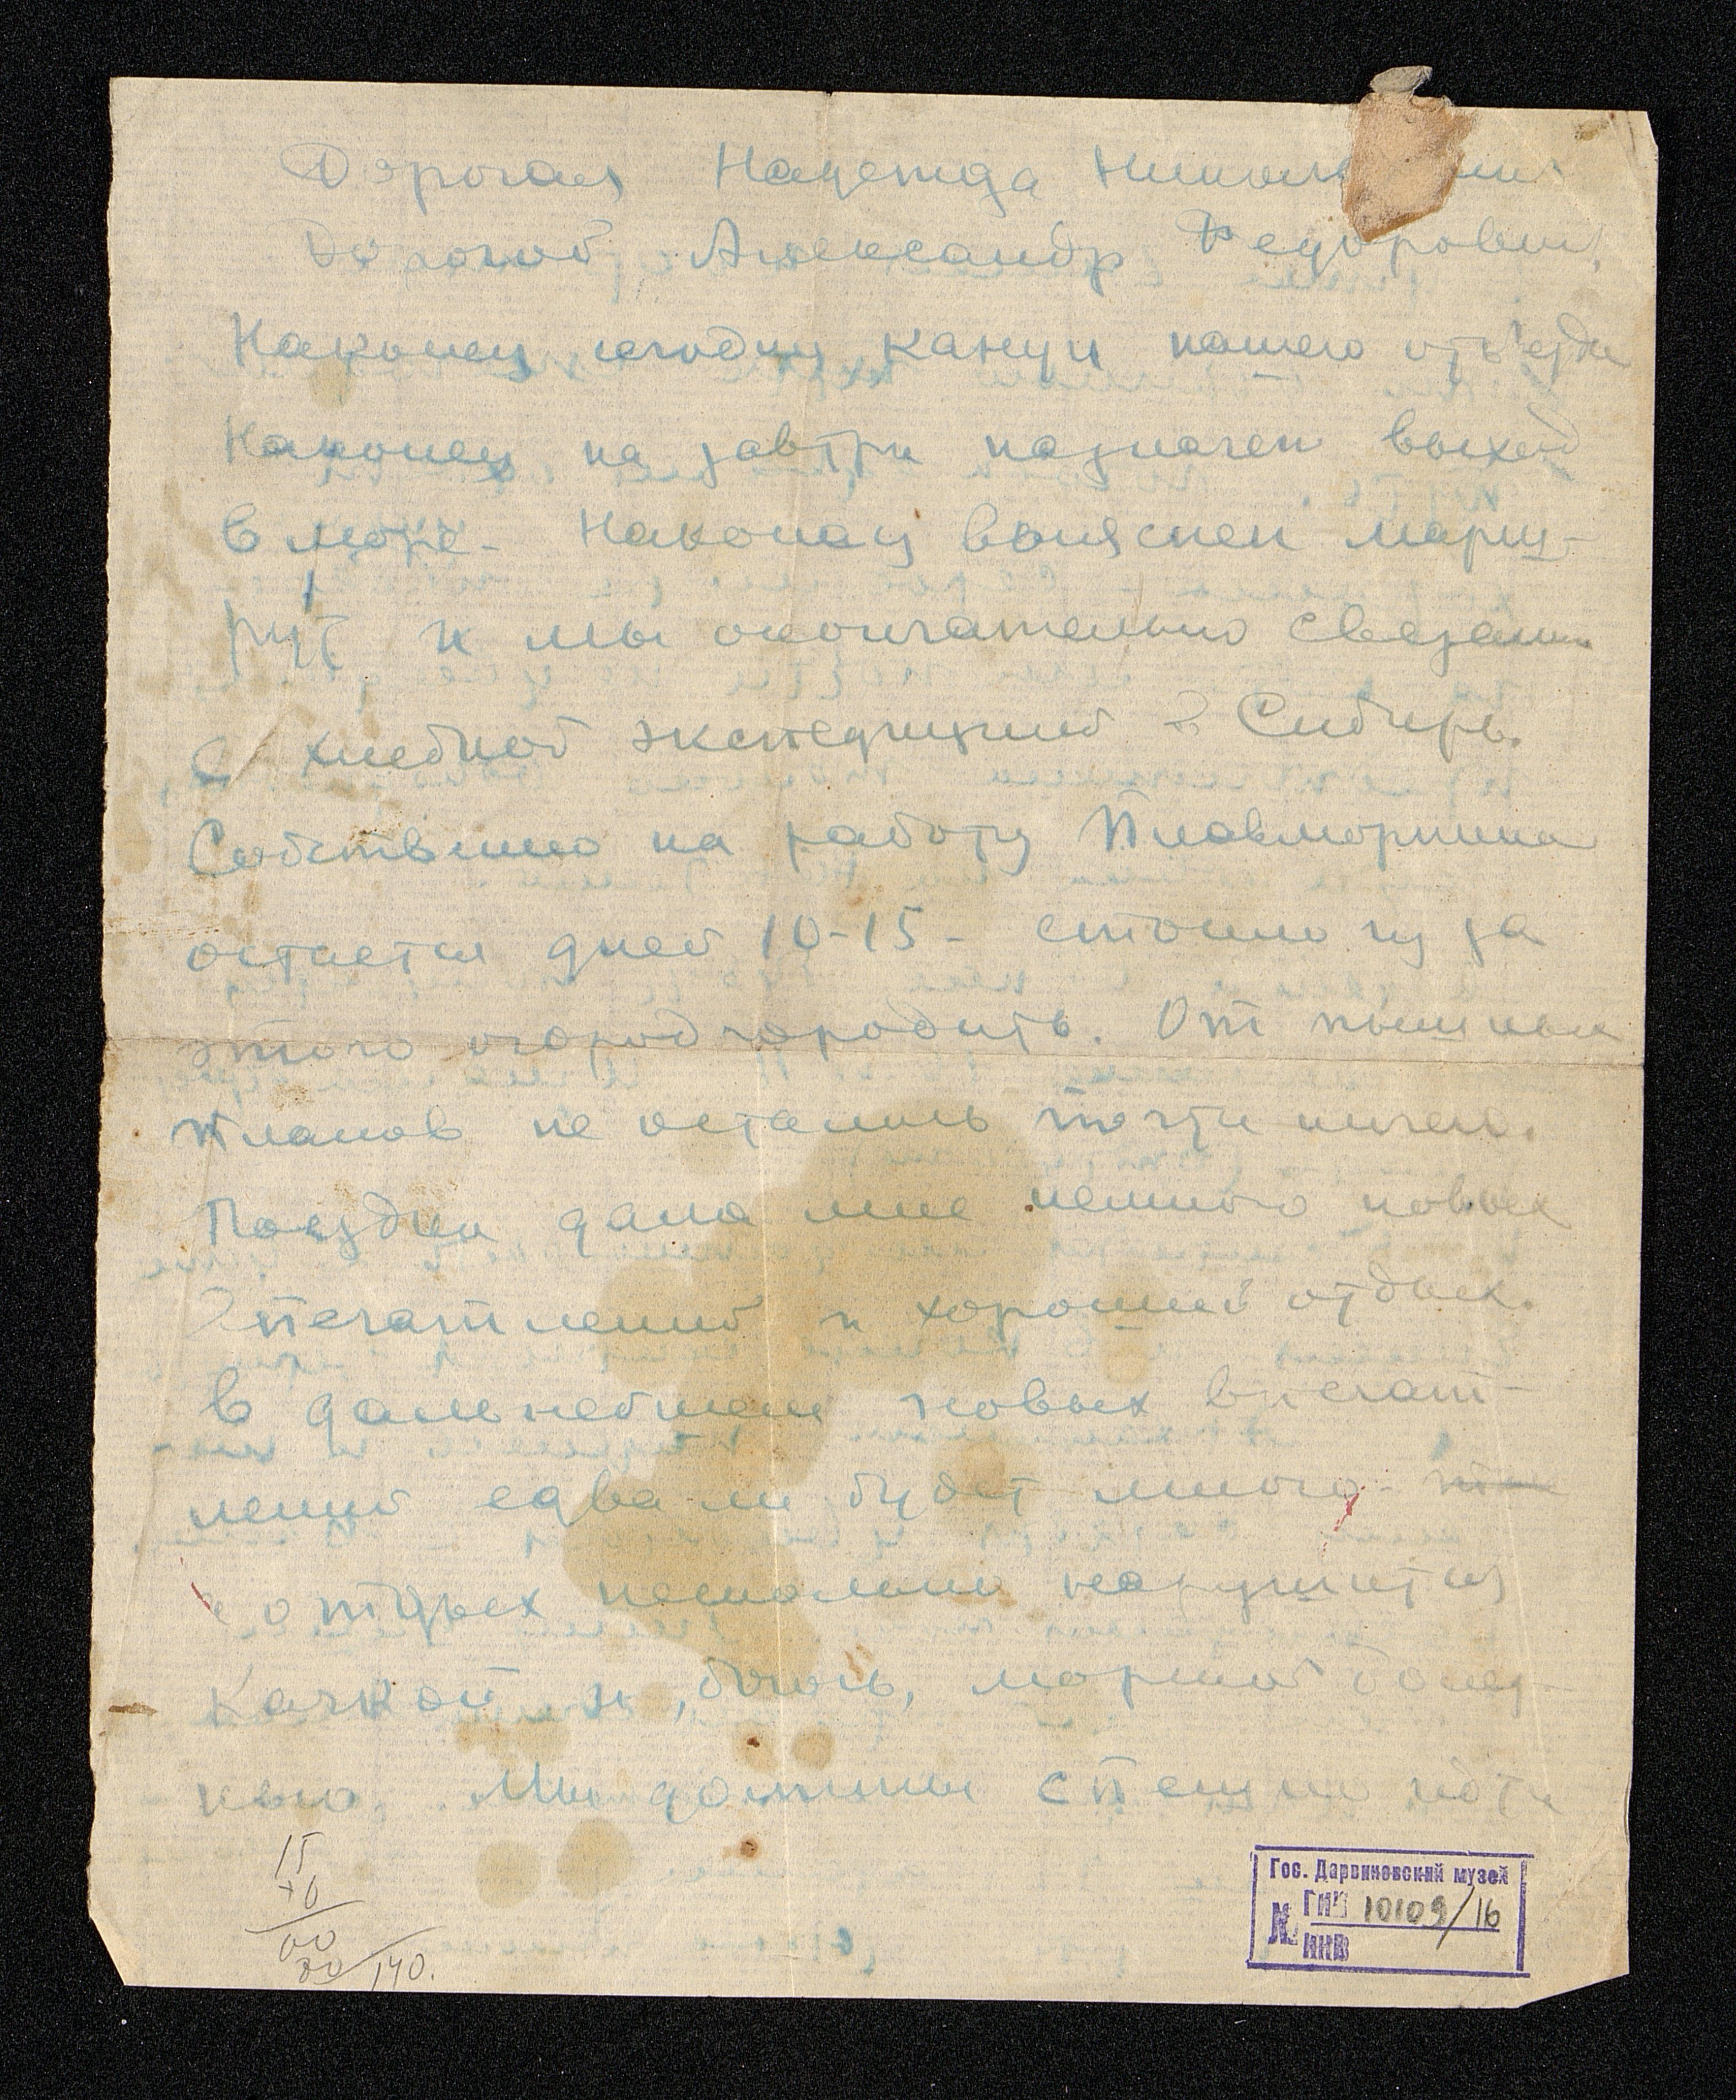 Дорогая Надежда
Дорогой Александр Федорович,
Наконец сегодня канун нашего отъезда
Наконец на завтра назначен выход
в море - Наконец выяснен марш-
рут и мы окончательно связаны
с хлебной экспедицией в Сибирь.
Собственно на работу Плавморнина
остается дней 10-15 - стоило из за
этого огород городить. От пышных
планов не осталось почти ничего.
Поездка дала мне немного новых
впечатлений и хороший отдых.
В дальнейшем новых впечат-
лений едва ли будет много
а отдых несколько нарушится
качкой и, боюсь, морской болез-
нью. Мы должны спешно идти
15
10
00
140.
Гос. Дарвиновский музей
№ ГИК 10109/16
ИНВ